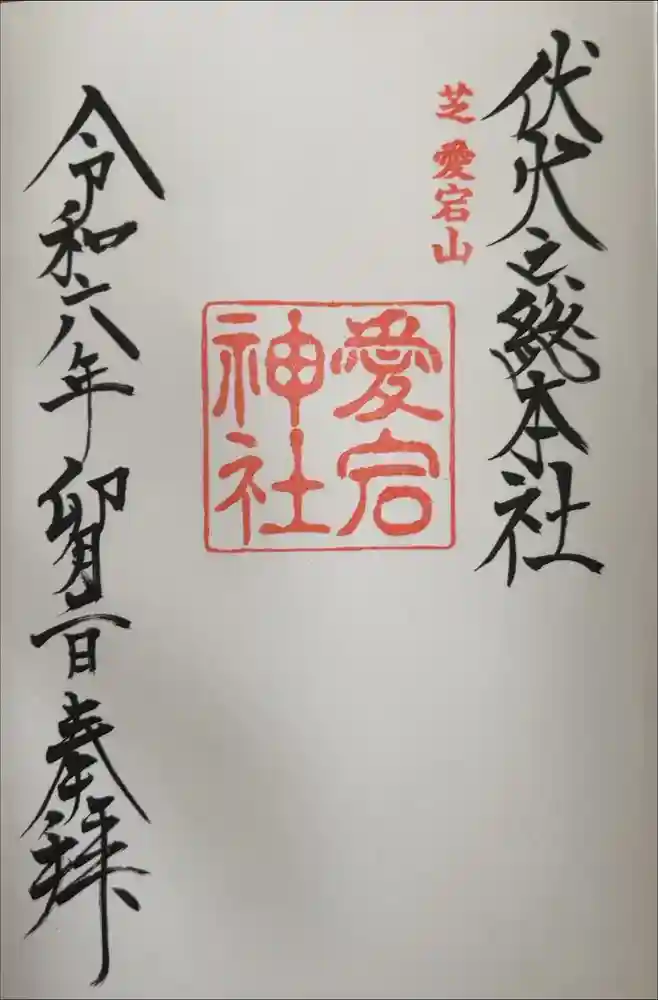 伏火之総本社
芝 愛宕山
愛宕
神社
令和六年卯月一日奉拝